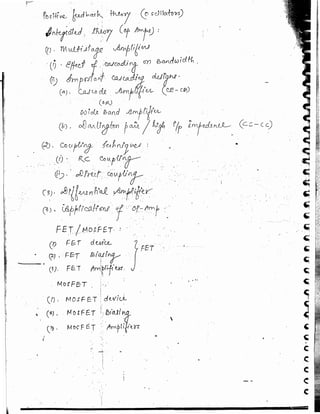 Positive feedback theory (oscillators)
Integrated theory (op Amps) :
(1). Multistage Amplifiers
(i). Effect of cascading on Bandwidth.
(ii) Important cascading designs-
(a). Cascade Amplifier (CE-CB)
(OR)
Wide Band Amplifier
(b). Darlington pair / high i/p impedance (CC-CC)
(2). Coupling techniques :
(i). RC coupling
(ii). Direct coupling
(3). Differential Amplifier
(3). Applications of OP-Amp.
FET / MOSFET :
(1) FET device
(2). FET Biasing
(3). FET Amplifier.
FET
MOSFET
(1). MOSFET device
(2). MOSFET Biasing
(3). MOSFET Amplifiers